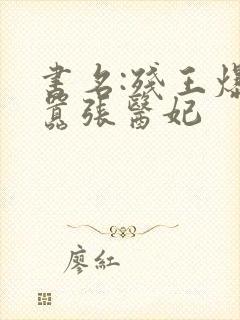 書名:殘王爆
囂張醫妃
廖紅